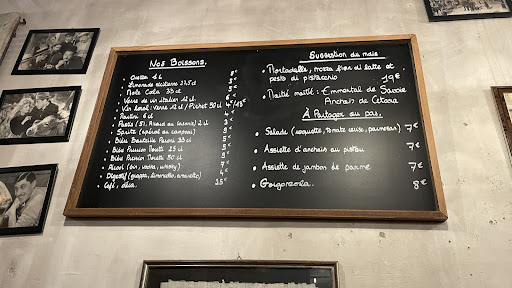 Nos Boissons.
Limonade sicilienne 27,5 cl
Mole Cola 33 cl
Verre de vin italien 12 cl
Vin local : Verre 12 cl / Pichet 50 cl
Pastis (51, Ricard ou casanis) 2 cl
Spritz (apérol ou campari)
Bibi Bouteille Peroni 33 cl
Bibi Pression Moretti 25 cl
Bibi Pression Moretti 50 cl
Alcool (gin, vodka, whisky)
Digestif (grappa, limoncello, amaretto)
Café, déca.
Suggestion du mois
• Mortadelle, mozza fior di latte et
pesto di pistacchio 19€
• Moitié moitié : Emmental de Savoie
Anchois de Cetara
À Partager ou pas.
• Salade (roquette, tomate cerise, parmesan) 7€
• Assiette d'anchois au pistou 7€
• Assiette de jambon de parme 7€
• Gorgonzola. 8€